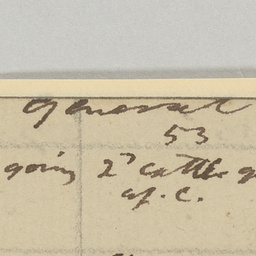 general
53
going 2d cattle g